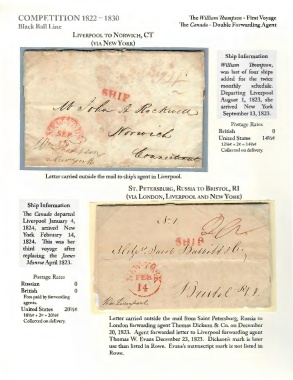 COMPETITION 1822 – 1830
Black Ball Line
The William Thompson - First Voyage
The Canada - Double Forwarding Agent
LIVERPOOL TO NORWICH, CT
(VIA NEW YORK)
SHIP
Mr John A Rockwell
Norwich
Connecticut
SEP
Letter carried outside the mail to ship's agent in Liverpool.
Ship Information
William Thompson,
was her of four ships
slated for the twice
monthly schedule.
Departing Liverpool
August 1, 1823, she
arrived New York
September 13, 1823.
Postage Rates
British 0
United States 14½¢
12½¢ + 2¢ = 14½¢
Collected on delivery.
ST. PETERSBURG, RUSSIA TO BRISTOL, RI
(VIA LONDON, LIVERPOOL AND NEW YORK)
Ship Information
The Canada departed
Liverpool January 4,
1824, arrived New
York February 14,
1824. This was her
third voyage after
replacing the James
Monroe April 1823.
Postage Rates
Russian 0
British 0
Fees paid by forwarding
agents.
United States 20½¢
18½¢ + 2¢ = 20½¢
Collected on delivery.
SHIP
FEB
14
Bristol R I
Letter carried outside the mail from Saint Petersburg, Russia to
London forwarding agent Thomas Dickson & Co. on December
20, 1823. Agent forwarded letter to Liverpool forwarding agent
Thomas W. Evans December 23, 1823. Dickson's mark is later
use than listed in Rowe. Evans's manuscript mark is not listed in
Rowe.